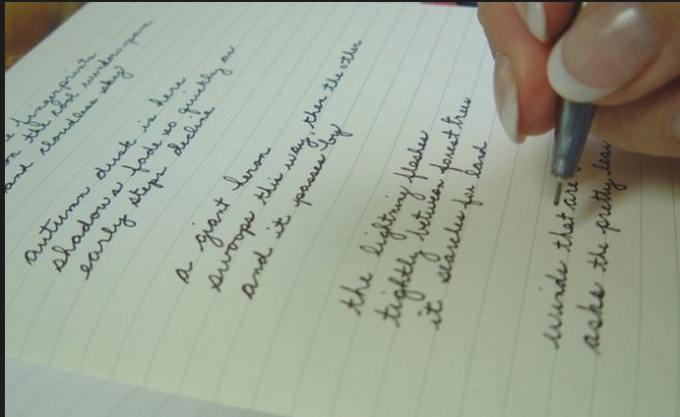 fingerprints
on the window pane
and cloudless sky
autumn dusk is here
shadows fade so quickly as
early steps decline
a giant heron
swoops this way, then the other
and it passes by
the lightning flashes
tightly between forest trees
it searches for land
winds that are
asks the pretty